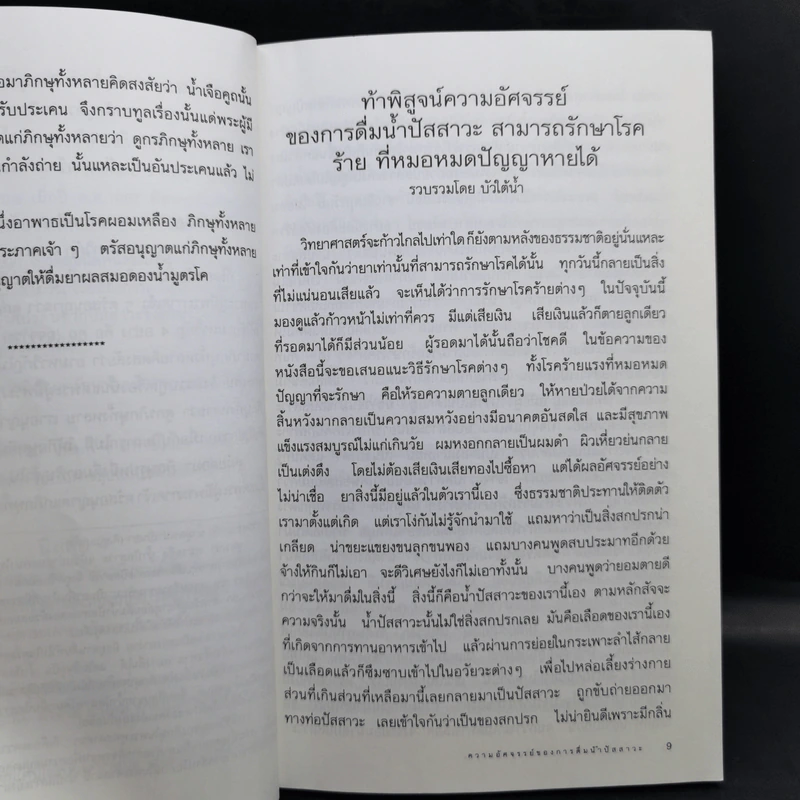 อมาภิกษุทั้งหลายคิดสงสัยว่า น้ำเจือคูถนั้น
รับประเคน จึงกราบทูลเรื่องนั้นแด่พระผู้มี
ตแก่ภิกษุทั้งหลายว่า ดูกรภิกษุทั้งหลาย เรา
กำลังถ่าย นั้นแหละเป็นอันประเคนแล้ว ไม่
นึ่งอาพาธเป็นโรคผอมเหลือง ภิกษุทั้งหลาย
ระภาคเจ้า ๆ ตรัสอนุญาตแก่ภิกษุทั้งหลาย
ญาตให้ดื่มยาผลสมอดองน้ำมูตรโค
******************
ท้าพิสูจน์ความอัศจรรย์
ของการดื่มน้ำปัสสาวะ สามารถรักษาโรค
ร้าย ที่หมอหมดปัญญาหายได้
รวบรวมโดย บัวใต้น้ำ
วิทยาศาสตร์จะก้าวไกลไปเท่าใด ก็ยังตามหลังของธรรมชาติอยู่นั่นแหละ
เท่าที่เข้าใจกันว่ายาเท่านั้นที่สามารถรักษาโรคได้นั้น ทุกวันนี้กลายเป็นสิ่ง
ที่ไม่แน่นอนเสียแล้ว จะเห็นได้ว่าการรักษาโรคร้ายต่างๆ ในปัจจุบันนี้
มองดูแล้วก้าวหน้าไม่เท่าที่ควร มีแต่เสียเงิน เสียเงินแล้วก็ตายลูกเดียว
ที่รอดมาได้ก็มีส่วนน้อย ผู้รอดมาได้นั้นถือว่าโชคดี ในข้อความของ
หนังสือนี้จะขอเสนอแนะวิธีรักษาโรคต่างๆ ทั้งโรคร้ายแรงที่หมอหมด
ปัญญาที่จะรักษา คือให้รอความตายลูกเดียว ให้หายป่วยได้จากความ
สิ้นหวังมากลายเป็นความสมหวังอย่างมีอนาคตอันสดใส และมีสุขภาพ
แข็งแรงสมบูรณ์ไม่แก่เกินวัย ผมหงอกกลายเป็นผมดำ ผิวเหี่ยวย่นกลาย
เป็นเต่งตึง โดยไม่ต้องเสียเงินเสียทองไปซื้อหา แต่ได้ผลอัศจรรย์อย่าง
ไม่น่าเชื่อ ยาสิ่งนี้มีอยู่แล้วในตัวเรานี้เอง ซึ่งธรรมชาติประทานให้ติดตัว
เรามาตั้งแต่เกิด แต่เราโง่กันไม่รู้จักนำมาใช้ แถมหาว่าเป็นสิ่งสกปรกน่า
เกลียด น่าขยะแขยงขนลุกขนพอง แถมบางคนพูดสบประมาทอีกด้วย
จ้างให้กินก็ไม่เอา จะดีวิเศษยังไงก็ไม่เอาทั้งนั้น บางคนพูดว่ายอมตายดี
กว่าจะให้มาดื่มในสิ่งนี้ สิ่งนี้ก็คือน้ำปัสสาวะของเรานี้เอง ตามหลักสัจจะ
ความจริงนั้น น้ำปัสสาวะนั้นไม่ใช่สิ่งสกปรกเลย มันคือเลือดของเรานี้เอง
ที่เกิดจากการทานอาหารเข้าไป แล้วผ่านการย่อยในกระเพาะลำไส้กลาย
เป็นเลือดแล้วก็ซึมซาบเข้าไปในอวัยวะต่างๆ เพื่อไปหล่อเลี้ยงร่างกาย
ส่วนที่เกินส่วนที่เหลือมานี้เลยกลายมาเป็นปัสสาวะ ถูกขับถ่ายออกมา
ทางท่อปัสสาวะ เลยเข้าใจกันว่าเป็นของสกปรก ไม่น่ายินดีเพราะมีกลิ่น
ความอัศจรรย์ของการดื่มน้ำปัสสาวะ 9